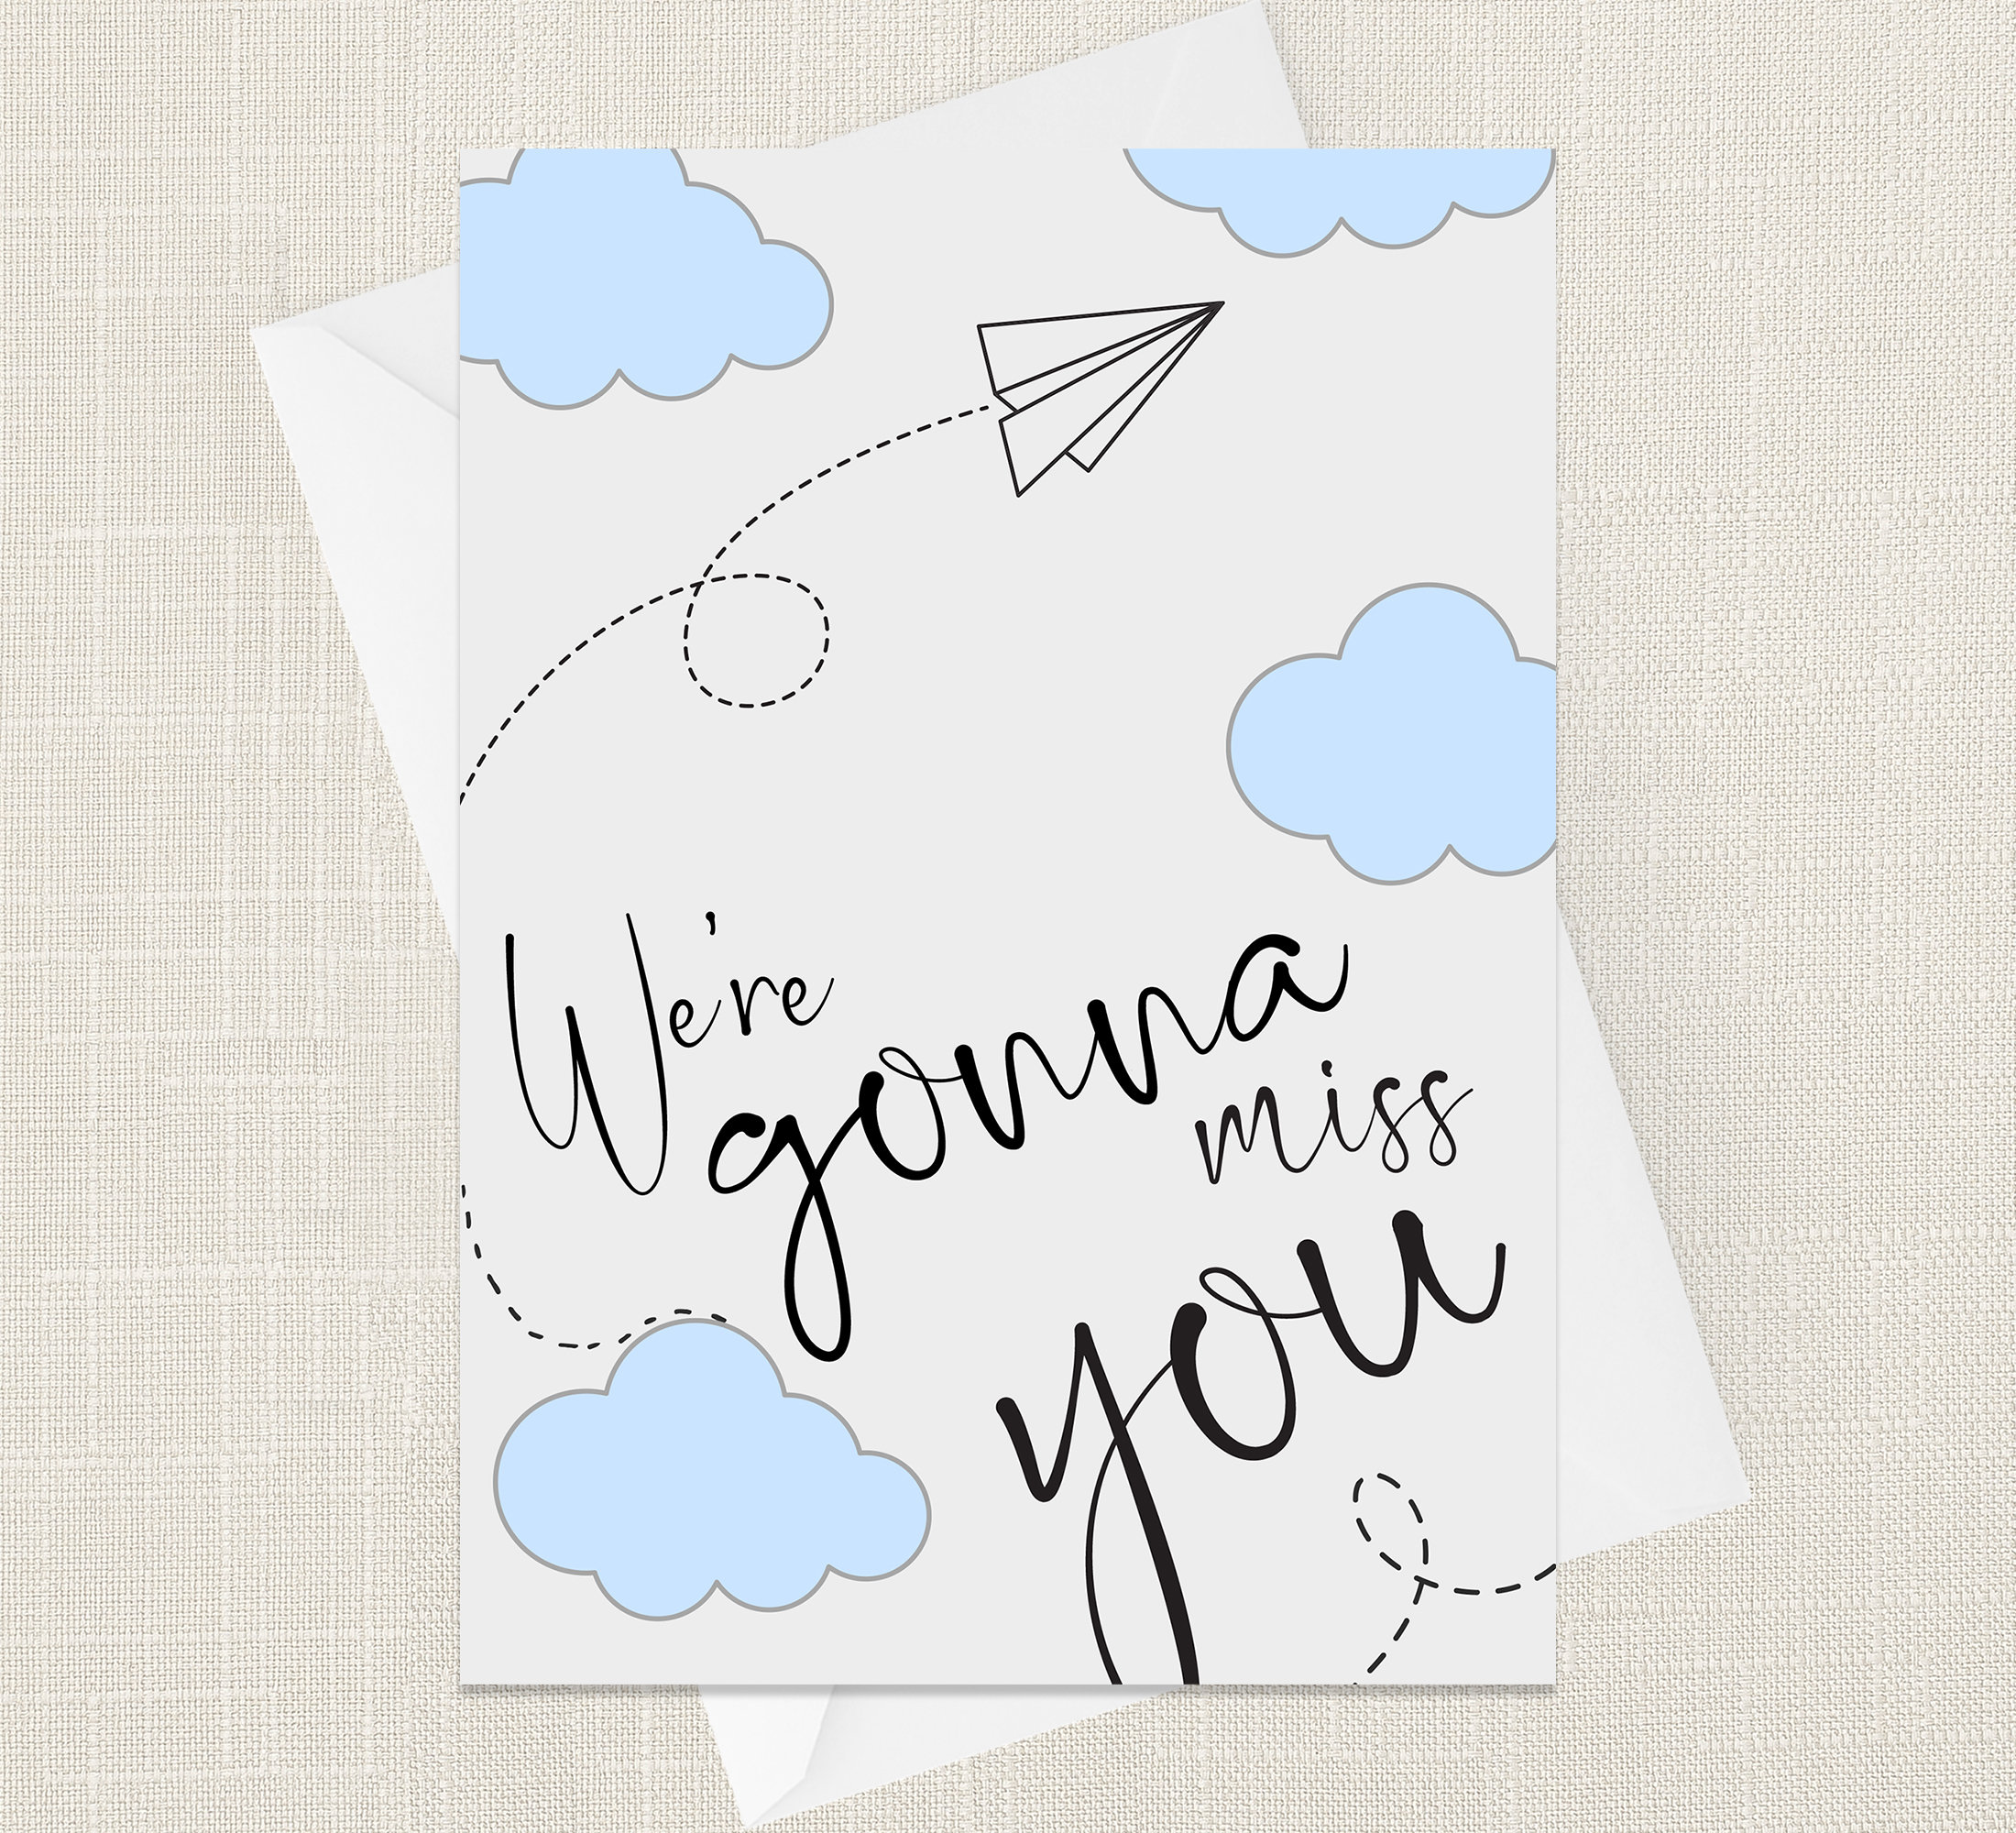 We're
gonna
miss
you